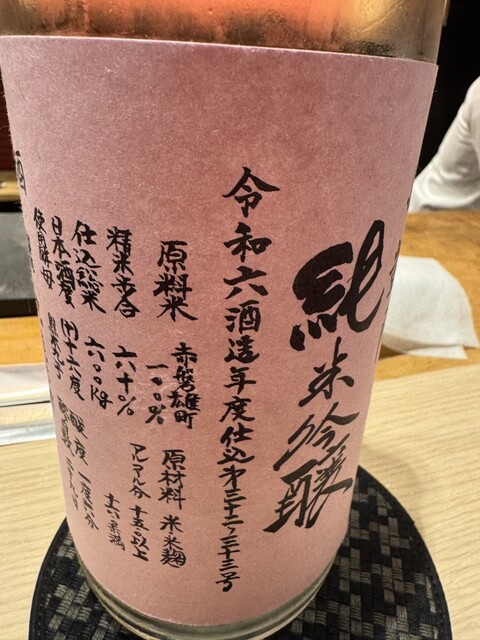 純米吟醸
令和六酒造年度仕込第三十二、三十三号
原料米 赤磐雄町
一〇〇%
原材料 米 米麹
精米歩合 六十%
アルコール分 十五度以上
十六度未満
仕込総米 六〇〇kg
日本酒度
使用酵母
酸度